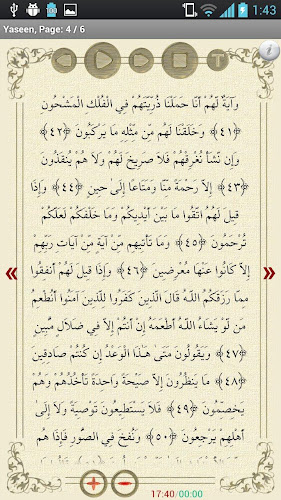 1:43
Yaseen, Page: 4 / 6
T
i
وَآيَةٌ لَّهُمْ أَنَّا حَمَلْنَا ذُرِّيَّتَهُمْ فِي الْفُلْكِ الْمَشْحُونِ
﴿٤١﴾ وَخَلَقْنَا لَهُم مِّن مِّثْلِهِ مَا يَرْكَبُونَ ﴿٤٢﴾
وَإِن نَّشَأْ نُغْرِقْهُمْ فَلَا صَرِيخَ لَهُمْ وَلَا هُمْ يُنقَذُونَ
﴿٤٣﴾ إِلَّا رَحْمَةً مِّنَّا وَمَتَاعًا إِلَى حِينٍ ﴿٤٤﴾ وَإِذَا
قِيلَ لَهُمُ اتَّقُوا مَا بَيْنَ أَيْدِيكُمْ وَمَا خَلْفَكُمْ لَعَلَّكُمْ
تُرْحَمُونَ ﴿٤٥﴾ وَمَا تَأْتِيهِم مِّنْ آيَةٍ مِّنْ آيَاتِ رَبِّهِمْ
إِلَّا كَانُوا عَنْهَا مُعْرِضِينَ ﴿٤٦﴾ وَإِذَا قِيلَ لَهُمْ أَنفِقُوا
مِمَّا رَزَقَكُمُ اللَّهُ قَالَ الَّذِينَ كَفَرُوا لِلَّذِينَ آمَنُوا أَنُطْعِمُ
مَن لَّوْ يَشَاءُ اللَّهُ أَطْعَمَهُ إِنْ أَنتُمْ إِلَّا فِي ضَلَالٍ مُّبِينٍ
﴿٤٧﴾ وَيَقُولُونَ مَتَى هَذَا الْوَعْدُ إِن كُنتُمْ صَادِقِينَ
﴿٤٨﴾ مَا يَنظُرُونَ إِلَّا صَيْحَةً وَاحِدَةً تَأْخُذُهُمْ وَهُمْ
يَخِصِّمُونَ ﴿٤٩﴾ فَلَا يَسْتَطِيعُونَ تَوْصِيَةً وَلَا إِلَى
أَهْلِهِمْ يَرْجِعُونَ ﴿٥٠﴾ وَنُفِخَ فِي الصُّورِ فَإِذَا هُم
17:40/00:00